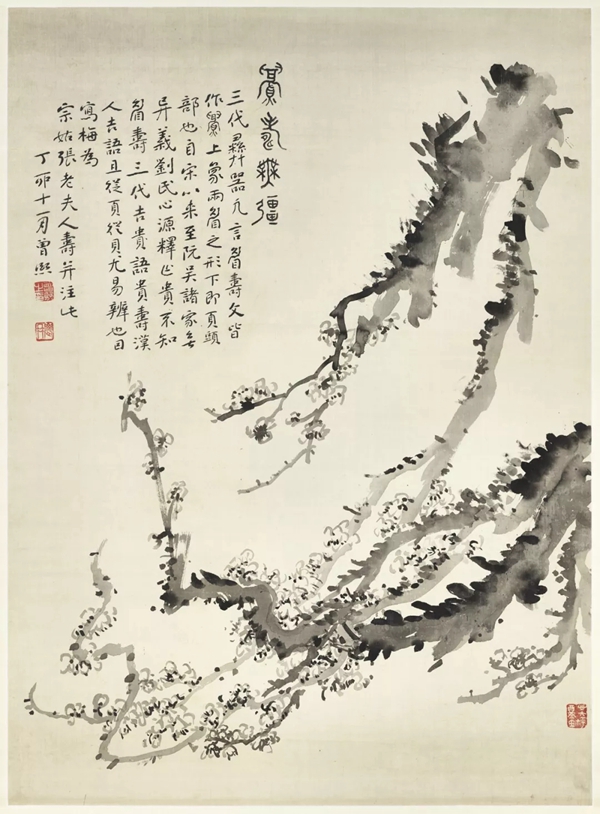 眉壽無彊
三代彝器凡言眉壽文皆
作釁上象兩眉之形下即頁頭
部也自宋以來至阮吳諸家無
异義劉氏心源釋貴不知
眉壽三代吉貴語貴壽漢
人吉語且從頁從貝尤易辨也因
寫梅為
宗姑張老夫人壽并注此
丁卯十一月曾熙